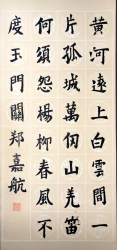 黃河遠上白雲間一
片孤城萬仞山羌笛
何須怨楊柳春風不
度玉門關鄭嘉航